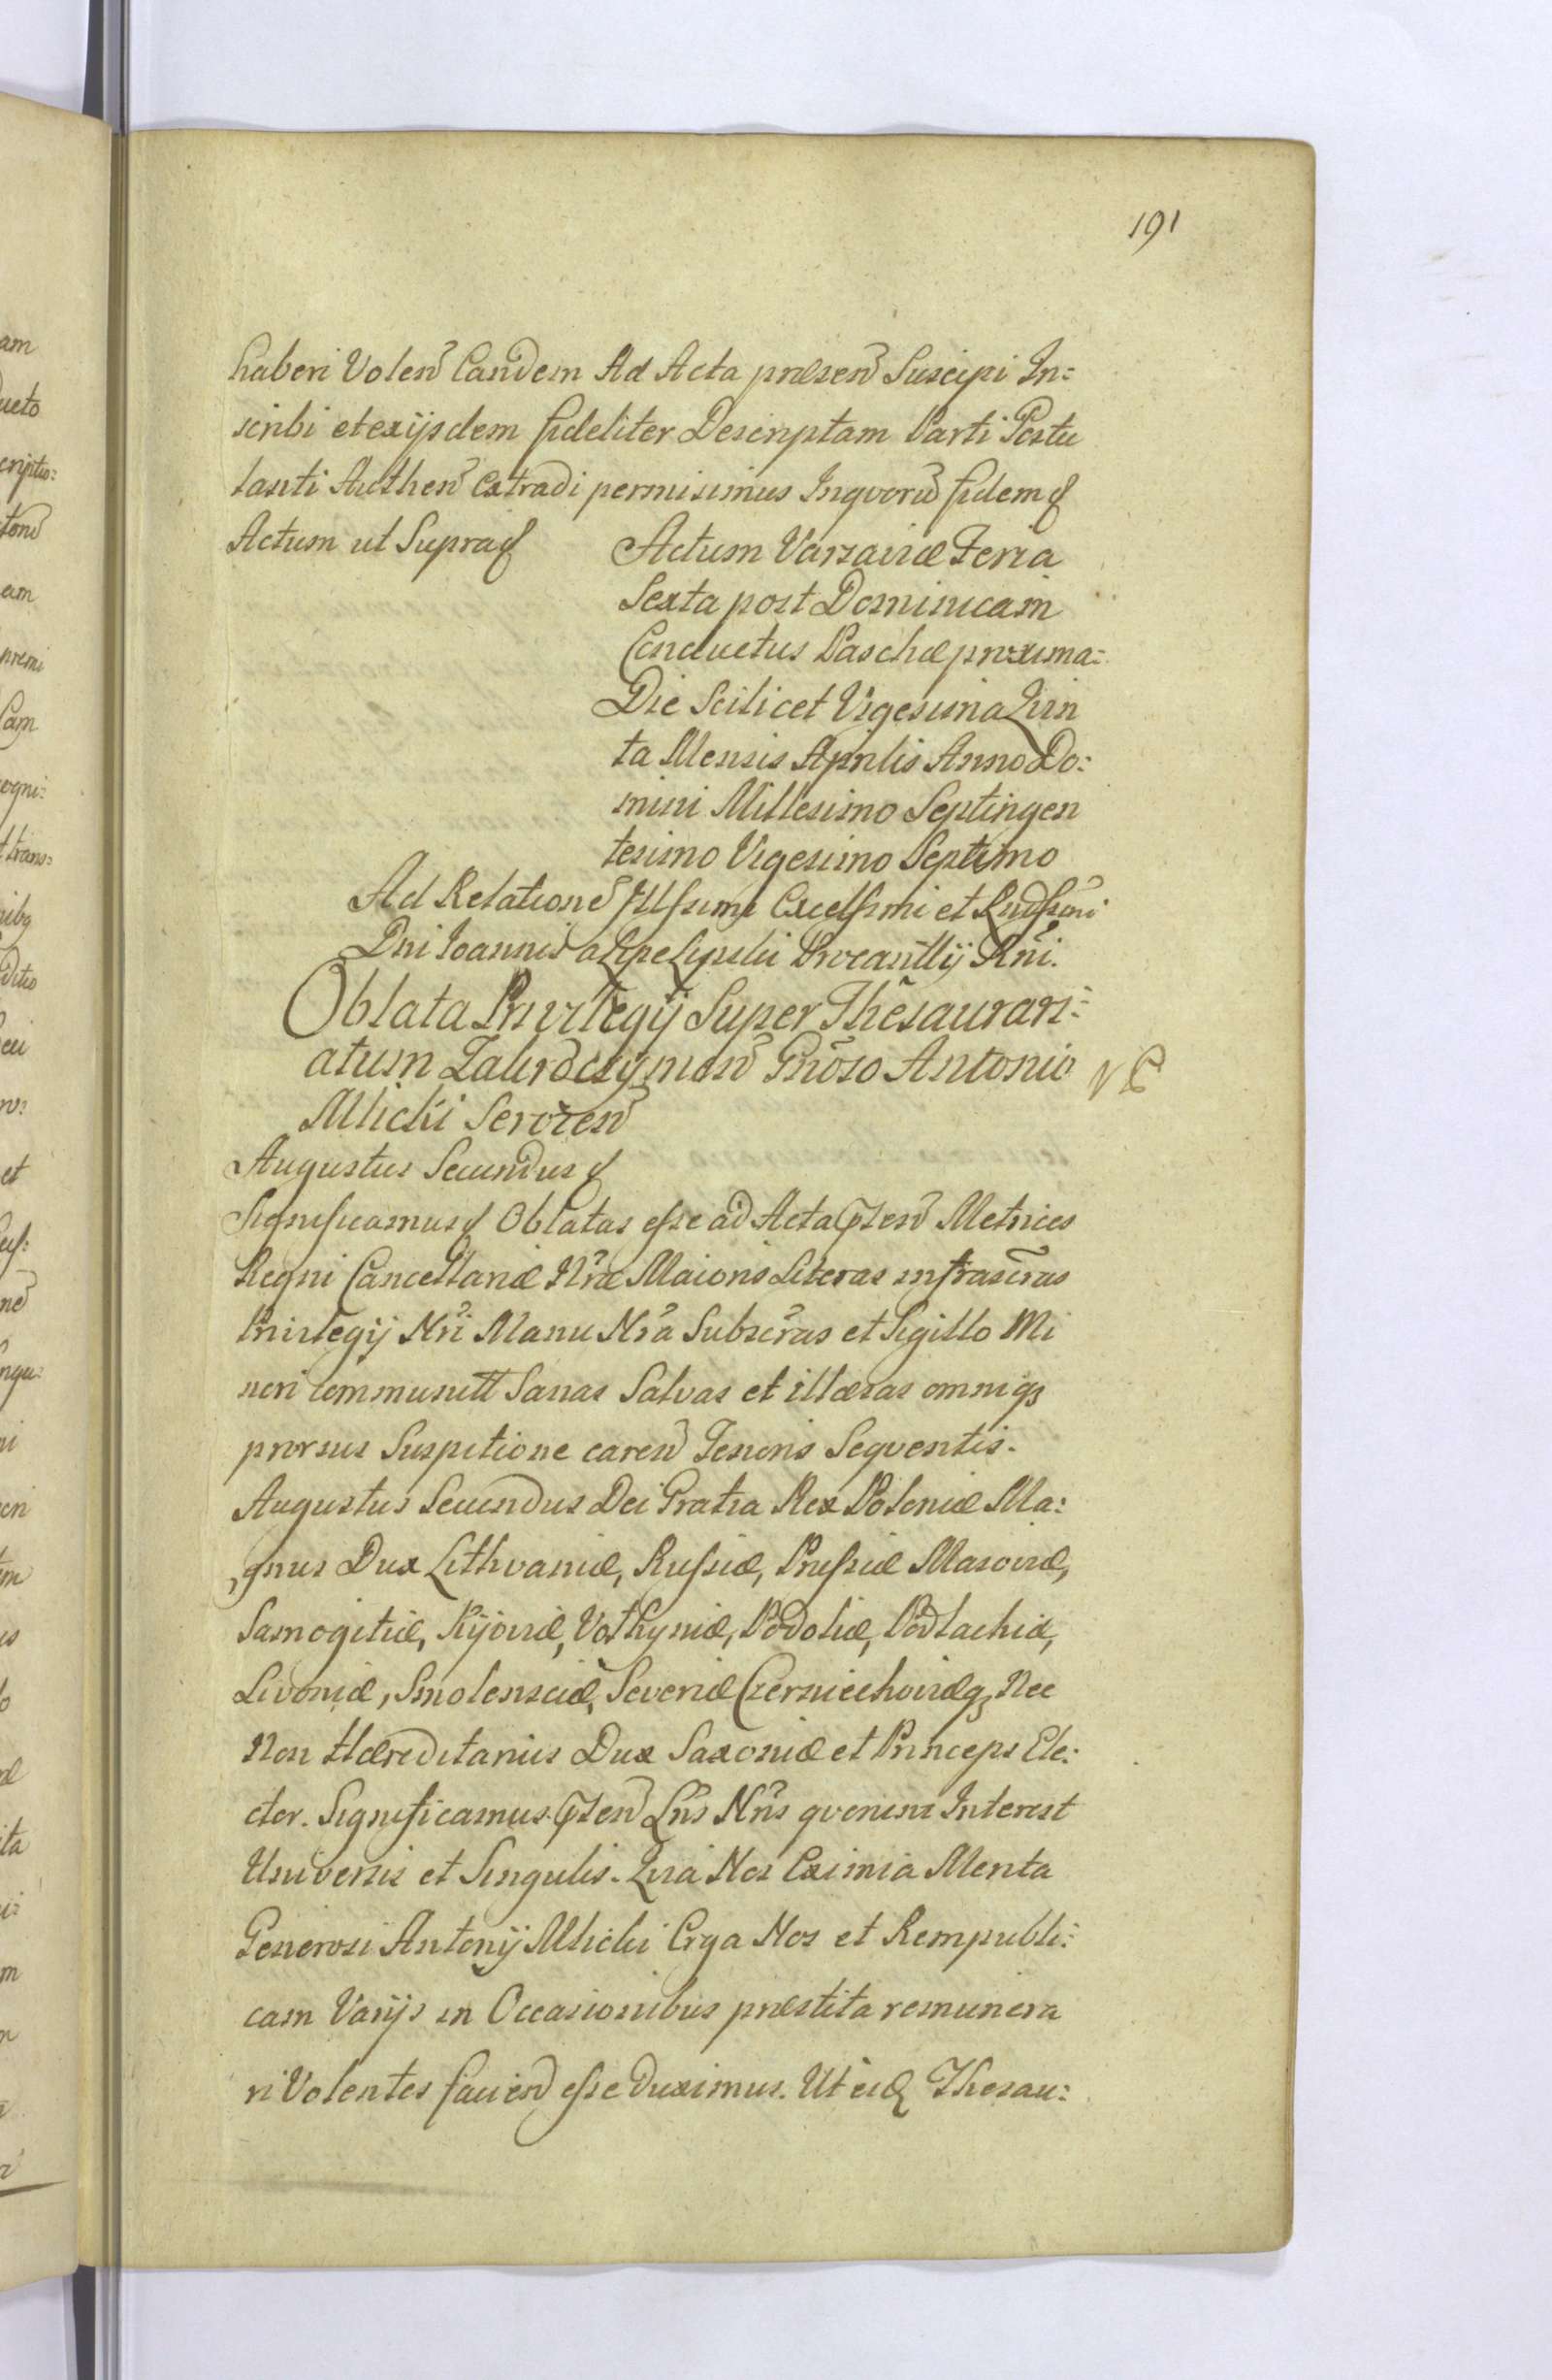 191
haberi Volen̄ Eandem Ad Acta præsen̄ Suscipi In=
scribi et ex ijsdem fideliter Descriptam Parti Postu
lanti Authen̄ Extradi permisimus Inqvorū fidem &
Actum ut Supra &
Actum Varsaviæ Feria
Sexta post Dominicam
Conductus Paschæ proxima=
Die Scilicet Vigesima Qvin
ta Mensis Aprilis Anno Do=
mini Millesimo Septingen
tesimo Vigesimo Septimo
Ad Relationē Illssimi Excellssimi et Rndssimi
Dni Ioannis a Lipe Lipski Procanllij Rñi.
Oblata Privilegij Super Thesaurari=
atum Zakroczymen̄ Gn̄oso Antonio
Mlicki Servien̄
Augustus Secundus &
Significamus & Oblatas esse ad Acta p̄sen̄ Metrices
Regni Cancellariæ Nr̄æ Maioris Literas infrascr̄as
Privilegij Nr̄i Manu Nr̄a Subscr̄as et Sigillo Mi
nori communitt Sanas Salvas et illæsas omniq₃
prorsus Suspitione caren̄ Tenoris Seqventis.
Augustus Secundus Dei Gratia Rex Poloniæ Ma=
gnus Dux Lithvaniæ, Russiæ, Prussiæ Masoviæ,
Samogitiæ, Kijoviæ, Volhyniæ, Podoliæ, Podlachiæ,
Livoniæ, Smolensciæ, Severiæ Czerniechoviæq₃ Nec
Non Hæreditarius Dux Saxoniæ et Princeps Ele=
ctor. Significamus p̄sen̄ Lr̄is Nr̄is qvorum Interest
Universis et Singulis. Qvia Nos Eximia Merita
Generosi Antonij Mlicki Erga Nos et Rempubli=
cam Varijs in Occasionibus præstita remunera
ri Volentes facien̄ esse Duximus. Ut eid̄ Thesau=